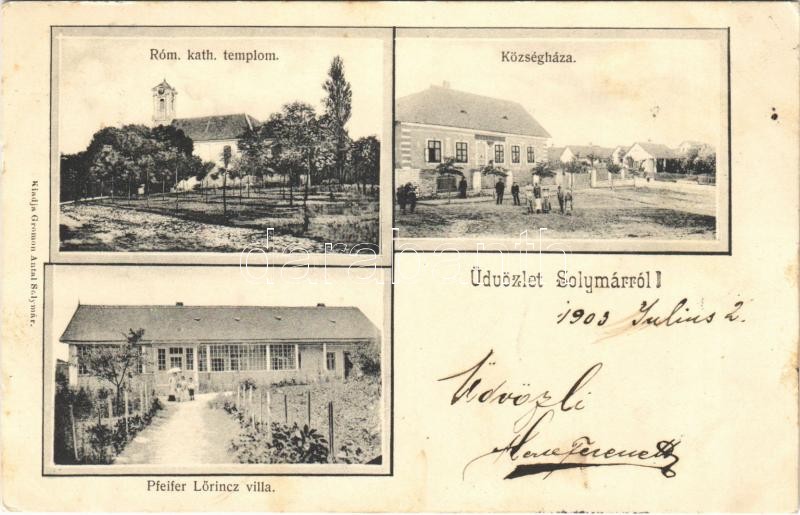 Róm. kath. templom.
Községháza.
Kiadja Gromon Antal Solymár.
darabanth
Üdvözlet Solymárról!
1903 Julius 2.
Üdvözli
Ferencz
Pfeifer Lőrincz villa.